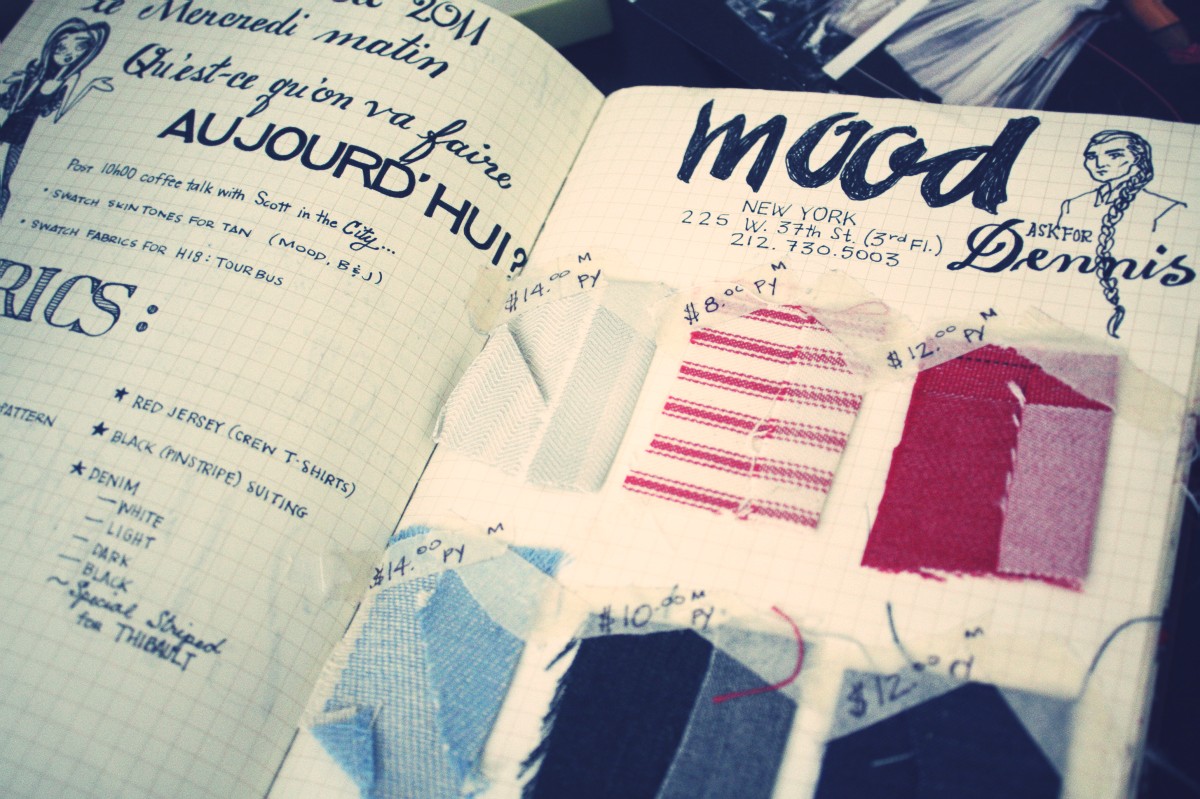 2011
le Mercredi matin
Qu'est-ce qu'on va faire
AUJOURD'HUI?
POST 10h00 coffee talk with Scott in the City...
• SWATCH SKINTONES FOR TAN (MOOD, B&J)
• SWATCH FABRICS FOR H18: TOUR BUS
RICS:
PATTERN
★ RED JERSEY (CREW T-SHIRTS)
★ BLACK (PINSTRIPE) SUITING
★ DENIM
— WHITE
— LIGHT
— DARK
— BLACK
~ Special Striped
for THIBAULT
mood
NEW YORK
225 W. 37th St. (3rd Fl.)
212. 730.5003
ASK FOR
Dennis
$14.00 PY M
$8.00 PY M
$12.00 PY M
$14.00 PY M
$10.00 PY M
$12.00 PY M